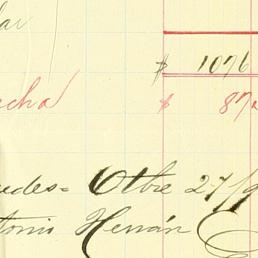 $ 1076
echa $ 87
edes= Obre 27/9
tonio Herrán